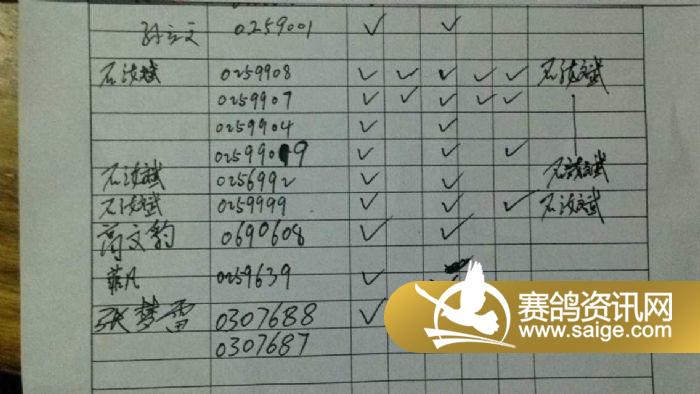 孙立文 0259001 ✓ ✓
石汝斌 0259908 ✓ ✓ ✓ ✓ ✓ 石汝斌
0259907 ✓ ✓ ✓ ✓ ✓
0259904 ✓ ✓
0259909 ✓ ✓ ✓
石汝斌 0256992 ✓ ✓ 石汝斌
石汝斌 0259999 ✓ ✓ ✓ 石汝斌
高文豹 0690608 ✓ ✓
菲凡 0259639 ✓
张梦雷 0307688 ✓
0307687
赛鸽资讯网
www.saige.com